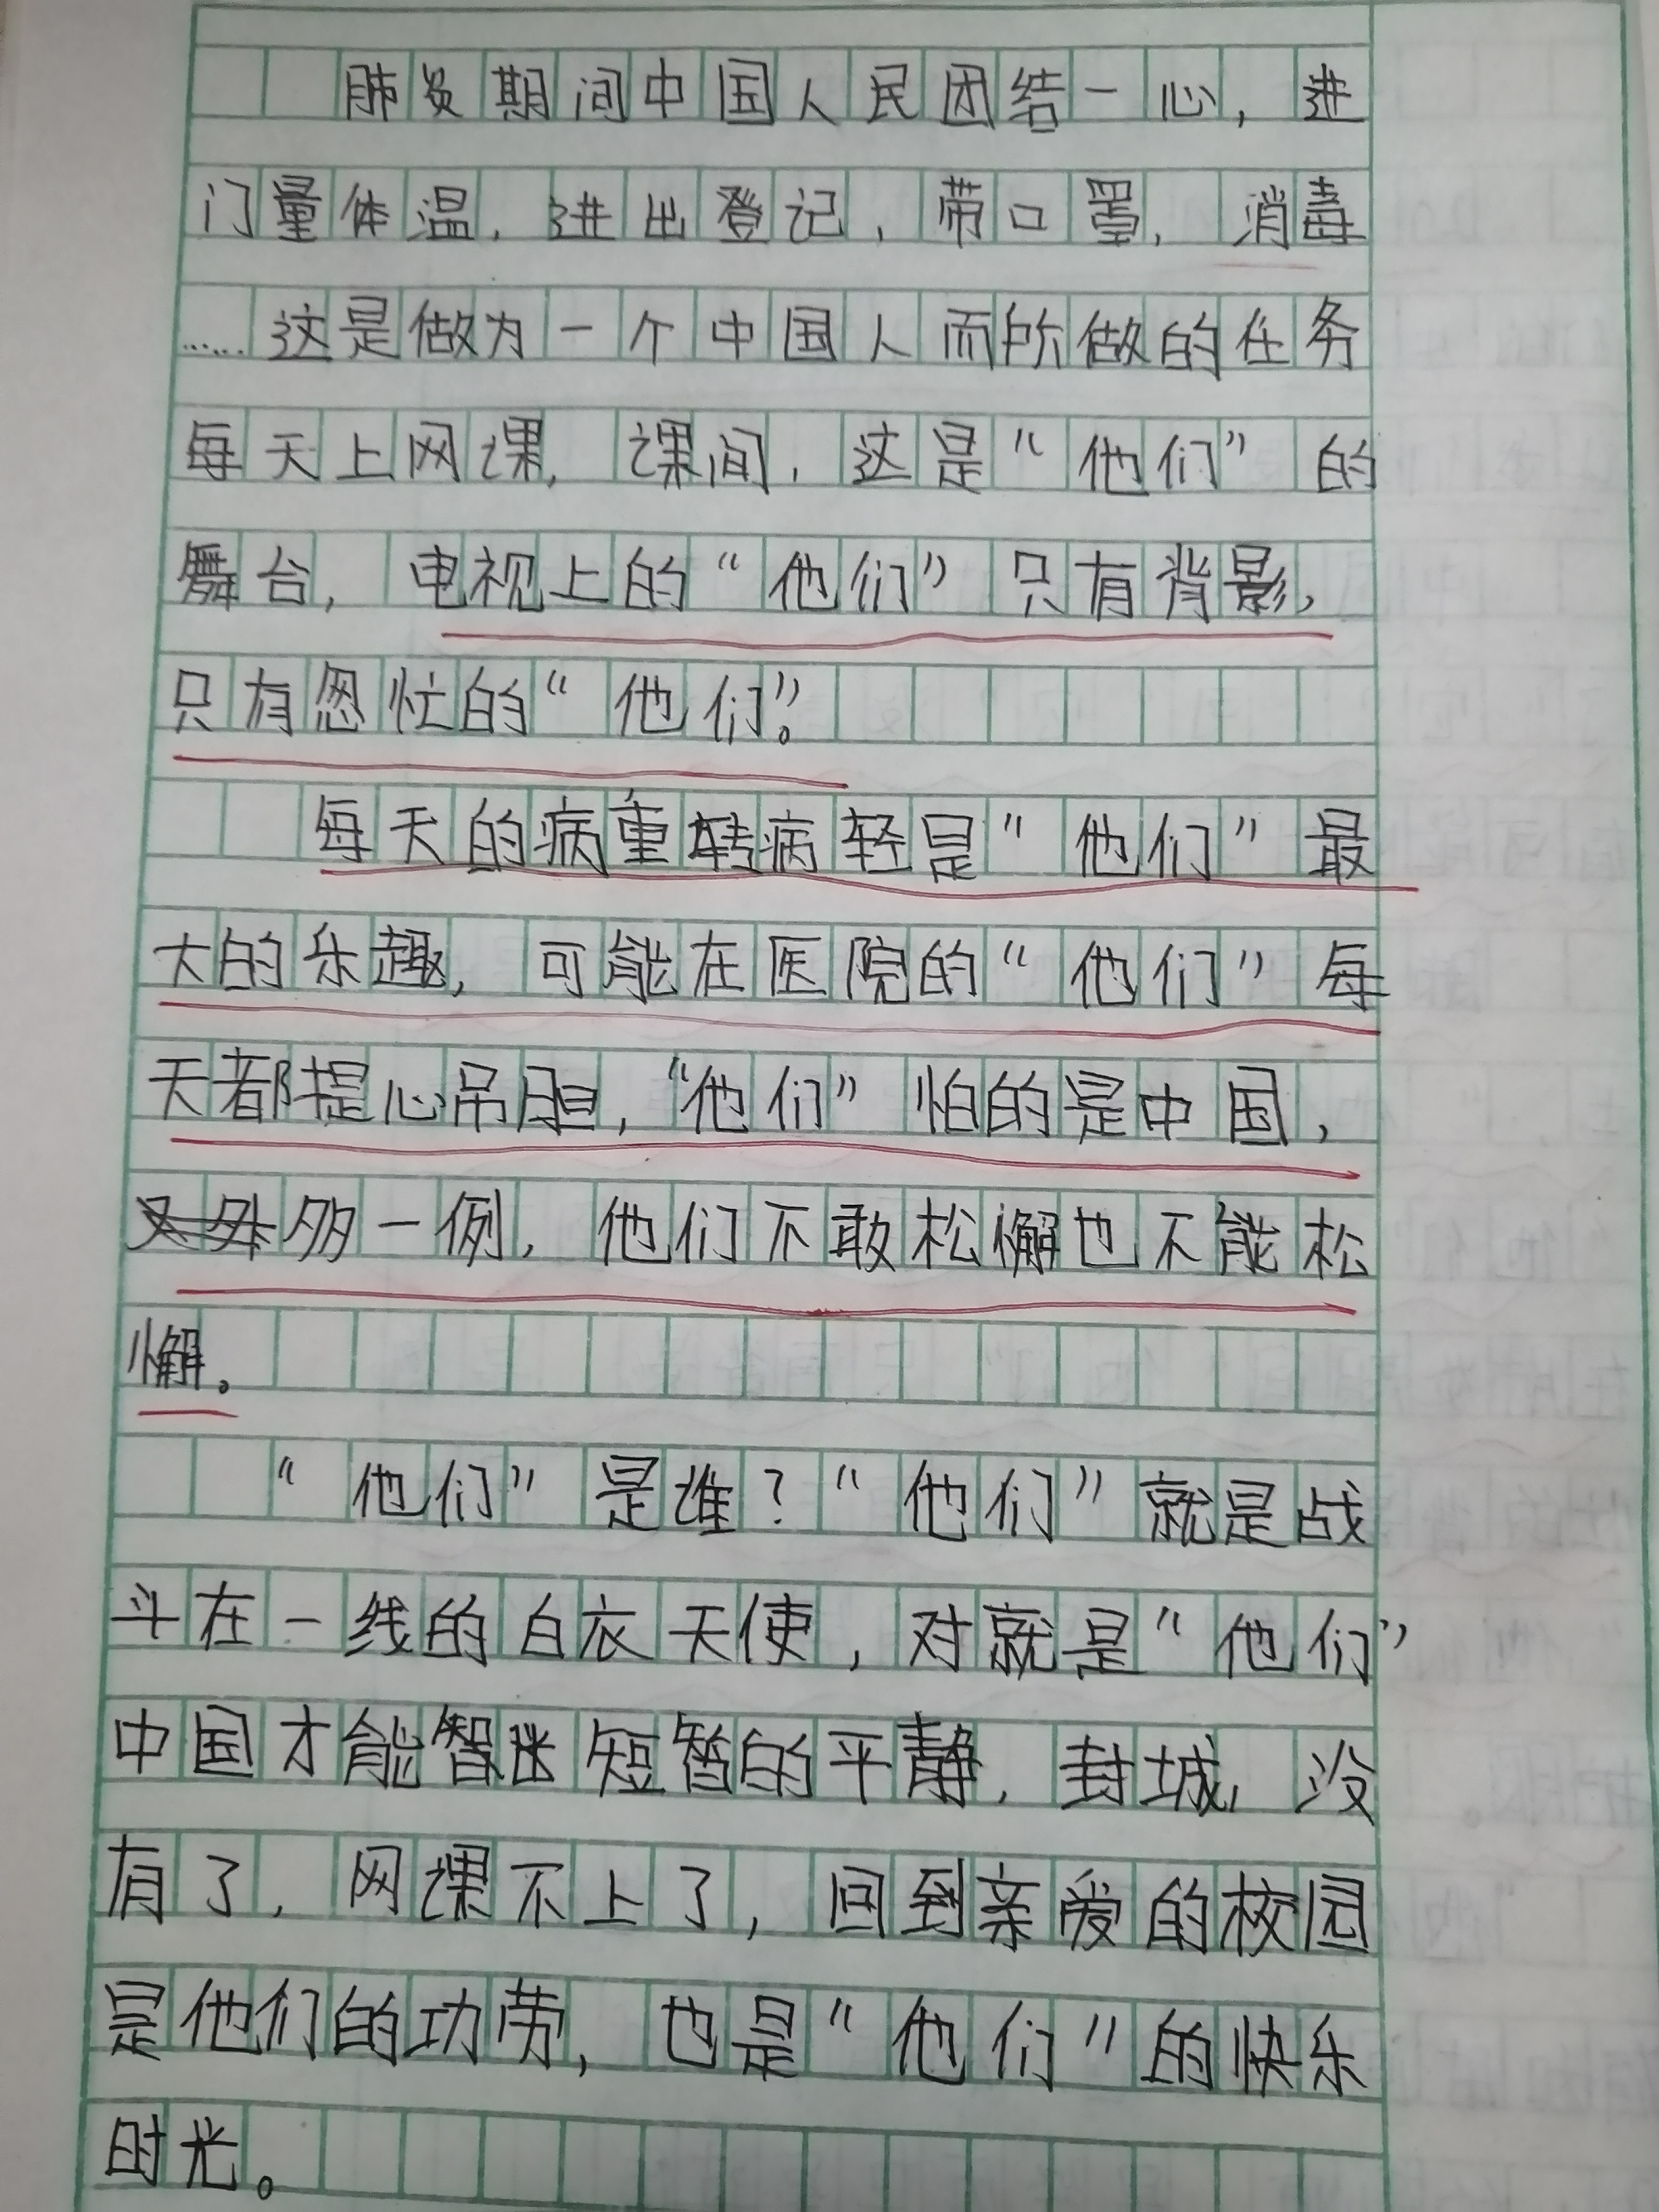 肺炎期间中国人民团结一心，进
门量体温，进出登记，带口罩，消毒
……这是做为一个中国人而所做的任务
每天上网课，课间，这是“他们”的
舞台，电视上的“他们”只有背影，
只有匆忙的“他们”。
每天的病重转病轻是“他们”最
大的乐趣，可能在医院的“他们”每
天都提心吊胆，“他们”怕的是中国，
多一例，他们不敢松懈也不能松
懈。
“他们”是谁？“他们”就是战
斗在一线的白衣天使，对就是“他们”
中国才能短暂的平静，封城，没
有了，网课不上了，回到亲爱的校园
是他们的功劳，也是“他们”的快乐
时光。